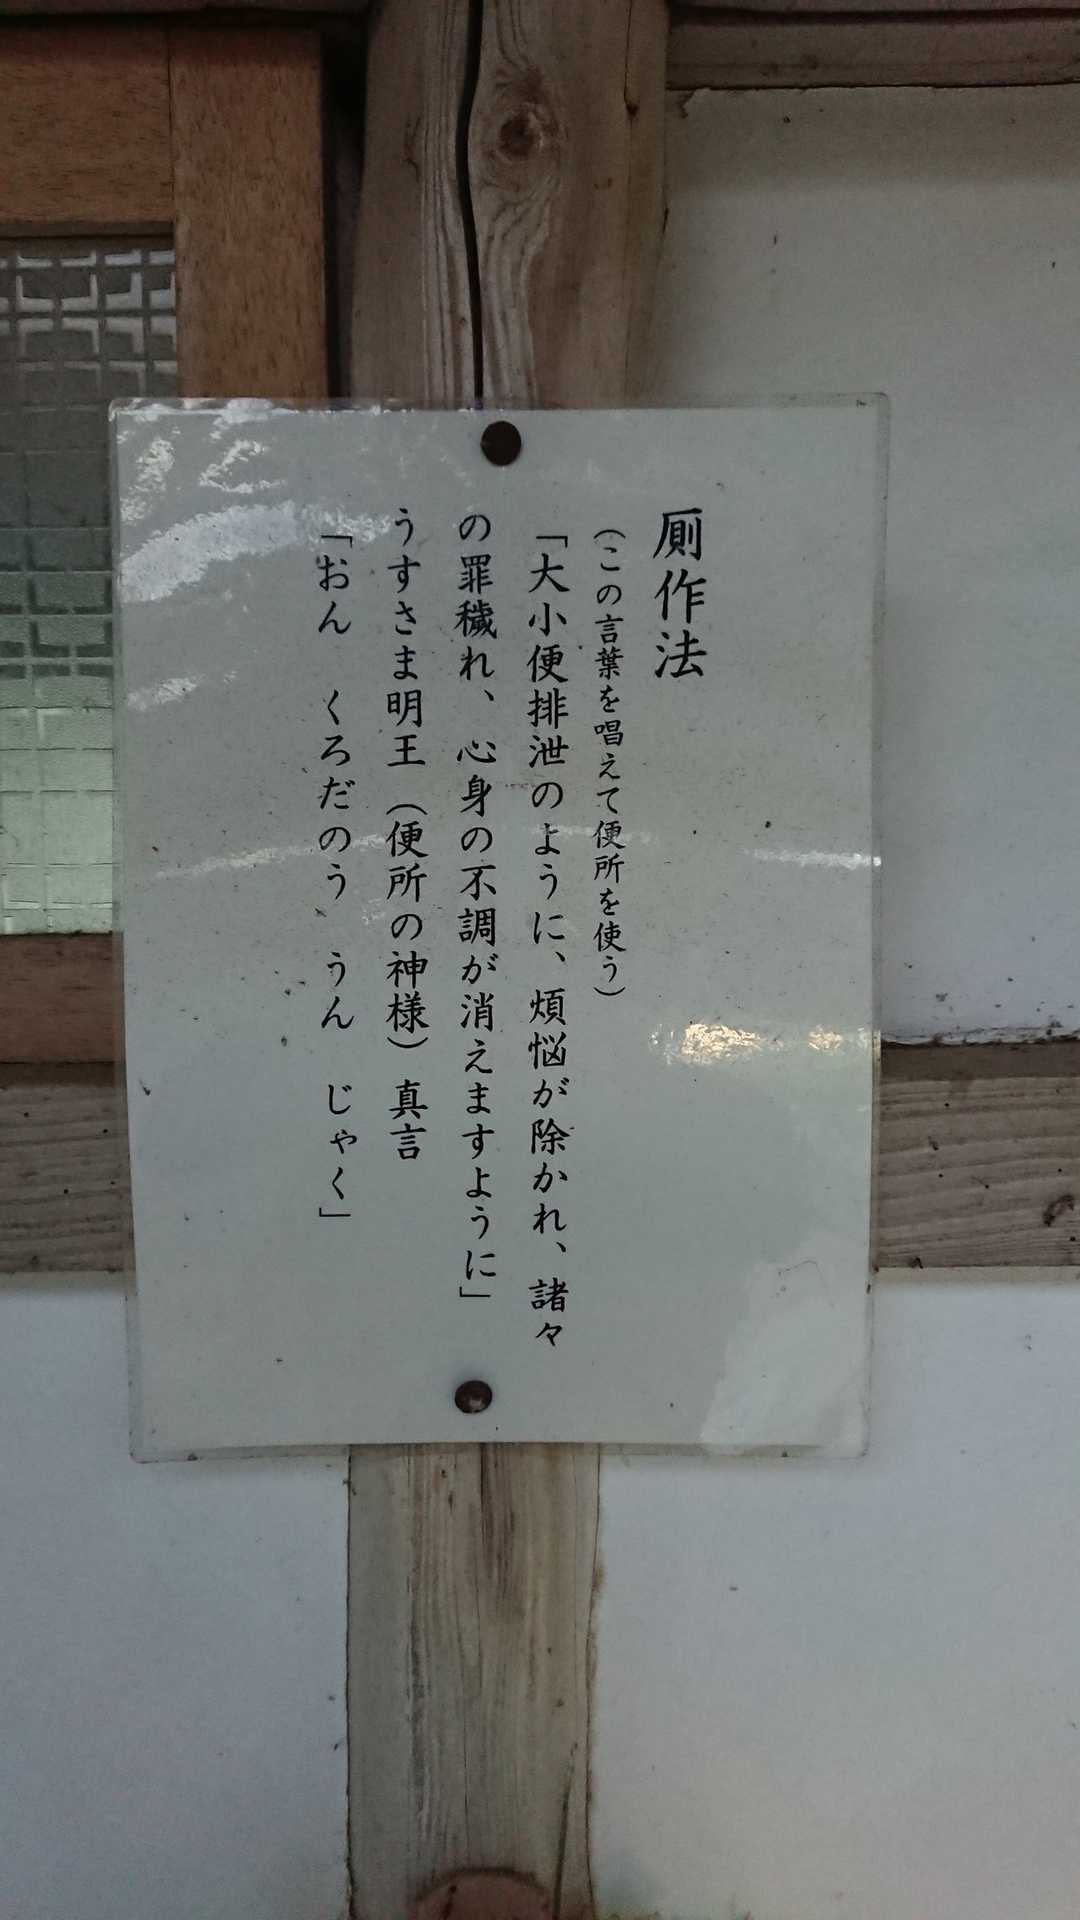 厠作法
（この言葉を唱えて便所を使う）
「大小便排泄のように、煩悩が除かれ、諸々
の罪穢れ、心身の不調が消えますように」
うすさま明王（便所の神様）真言
「おん　くろだのう　うん　じゃく」